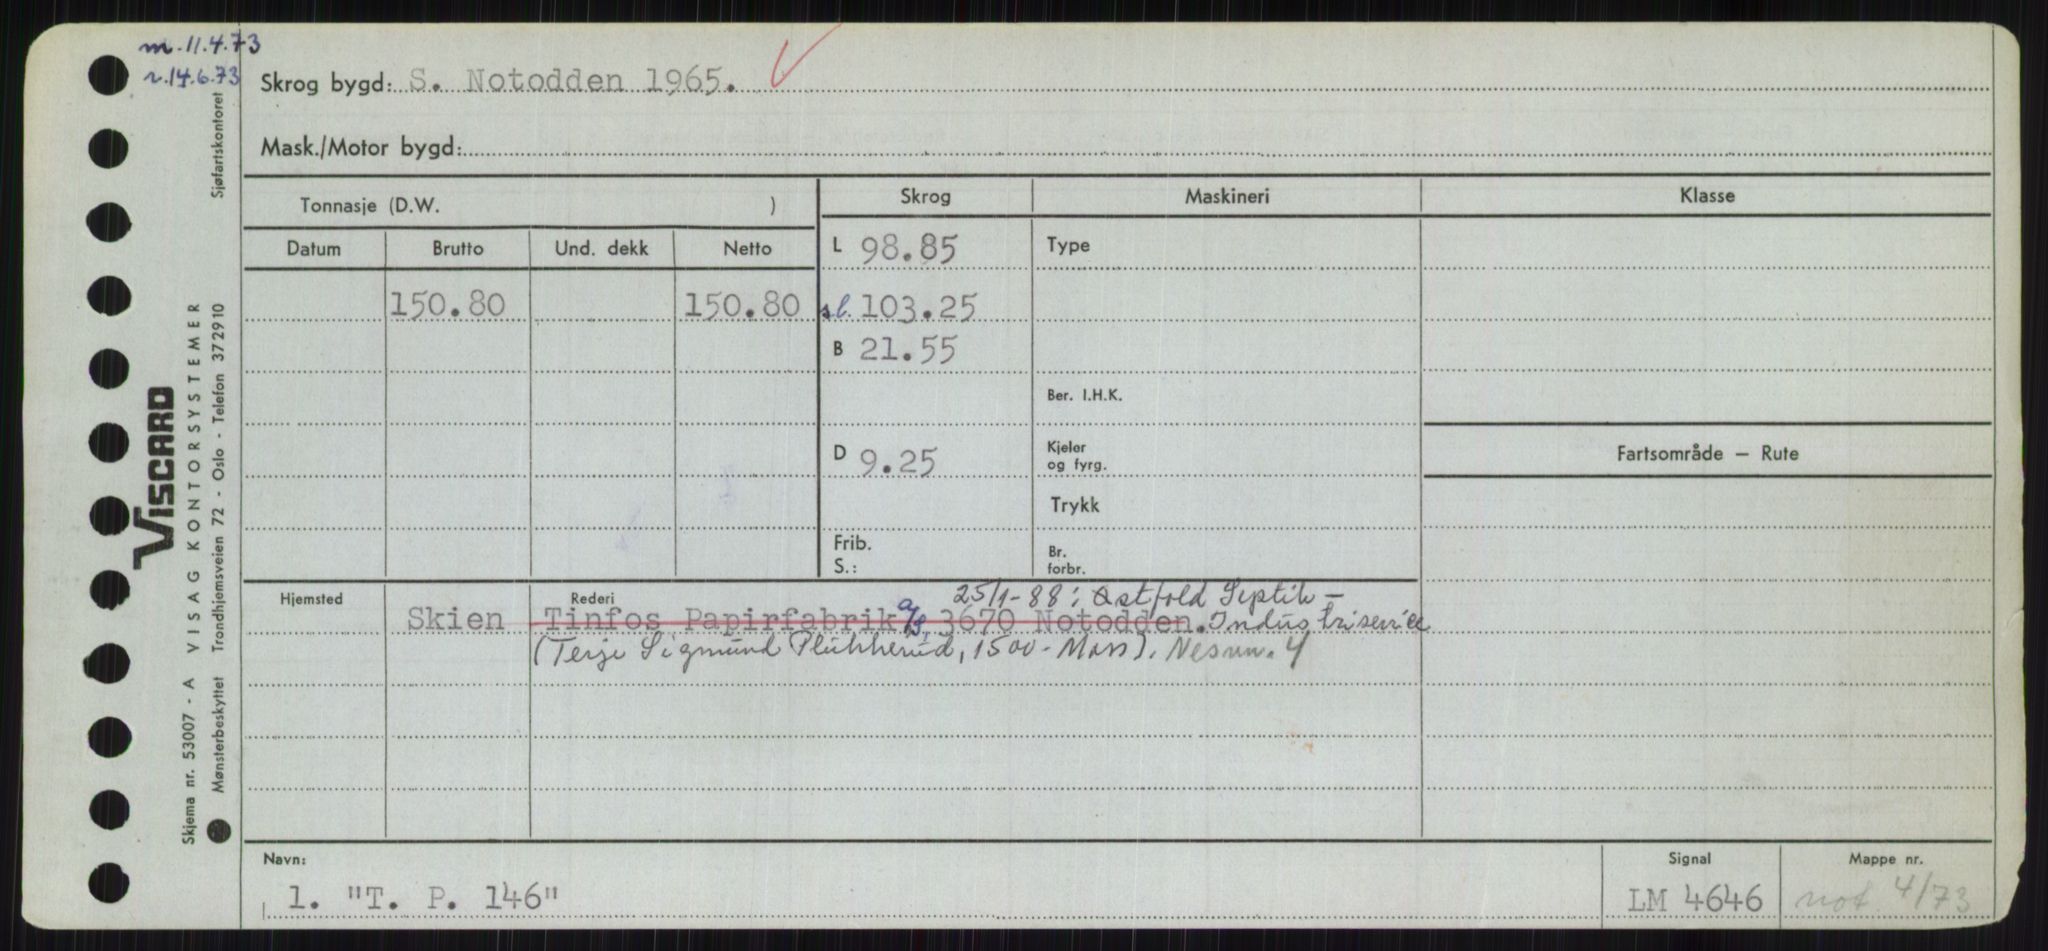 m. 11.4.73
r. 14.6.73
Skrog bygd: S. Notodden 1965.
Mask./Motor bygd:
Tonnasje (D.W. )
Skrog
Maskineri
Klasse
Datum Brutto Und. dekk Netto
L 98.85
Type
150.80 150.80
sl. 103.25
B 21.55
Ber. I.H.K.
D 9.25
Kjeler
og fyrg.
Fartsområde — Rute
Trykk
Frib.
S.:
Br.
forbr.
Hjemsted
Rederi
25/1-88: Østfold Septik-
Skien Tinfos Papirfabrik a/s, 3670 Notodden. Industriservice
(Terje Sigmund Plukkerud, 1500-Moss).
Navn:
1. "T. P. 146"
Signal
LM 4646
Mappe nr.
not. 4/73
Sjøfartskontoret
VISCARD
VISAG KONTORSYSTEMER
Trondhjemsveien 72 - Oslo - Telefon 372910
Skjema nr. 53007 - A
Mønsterbeskyttet